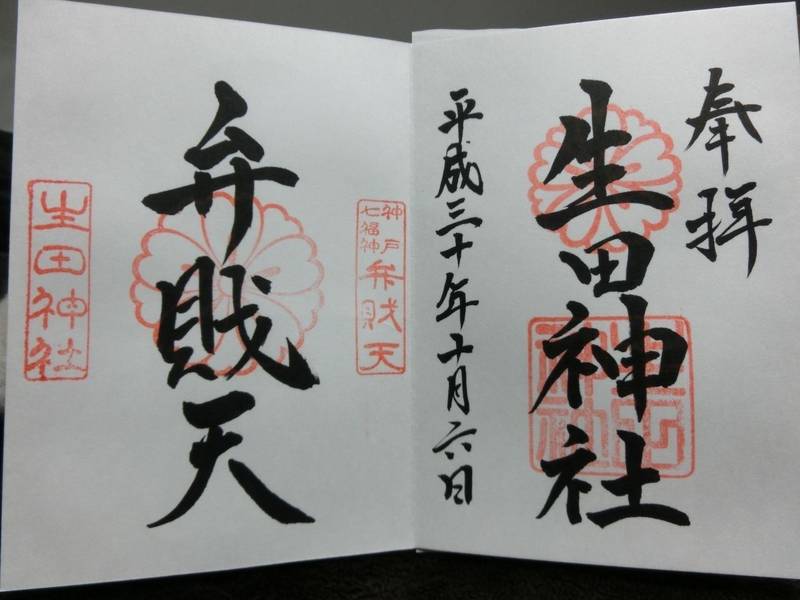 奉拝
生田神社
平成三十年十月六日
神戸
七福神
弁財天
弁財天
生田神社